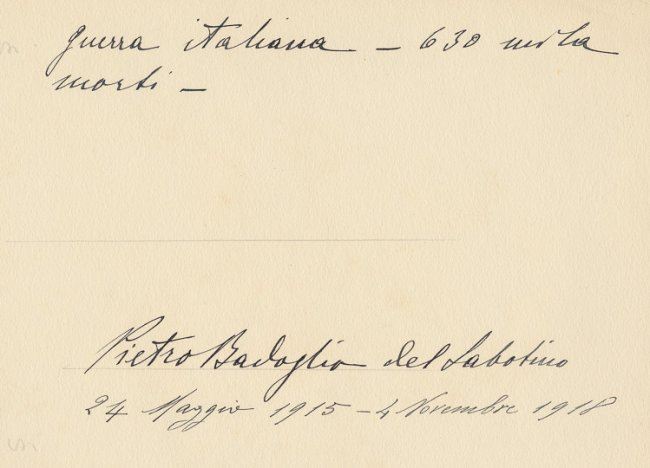 guerra italiana – 630 mila
morti –
Pietro Badoglio del Sabotino
24 Maggio 1915 – 4 Novembre 1918